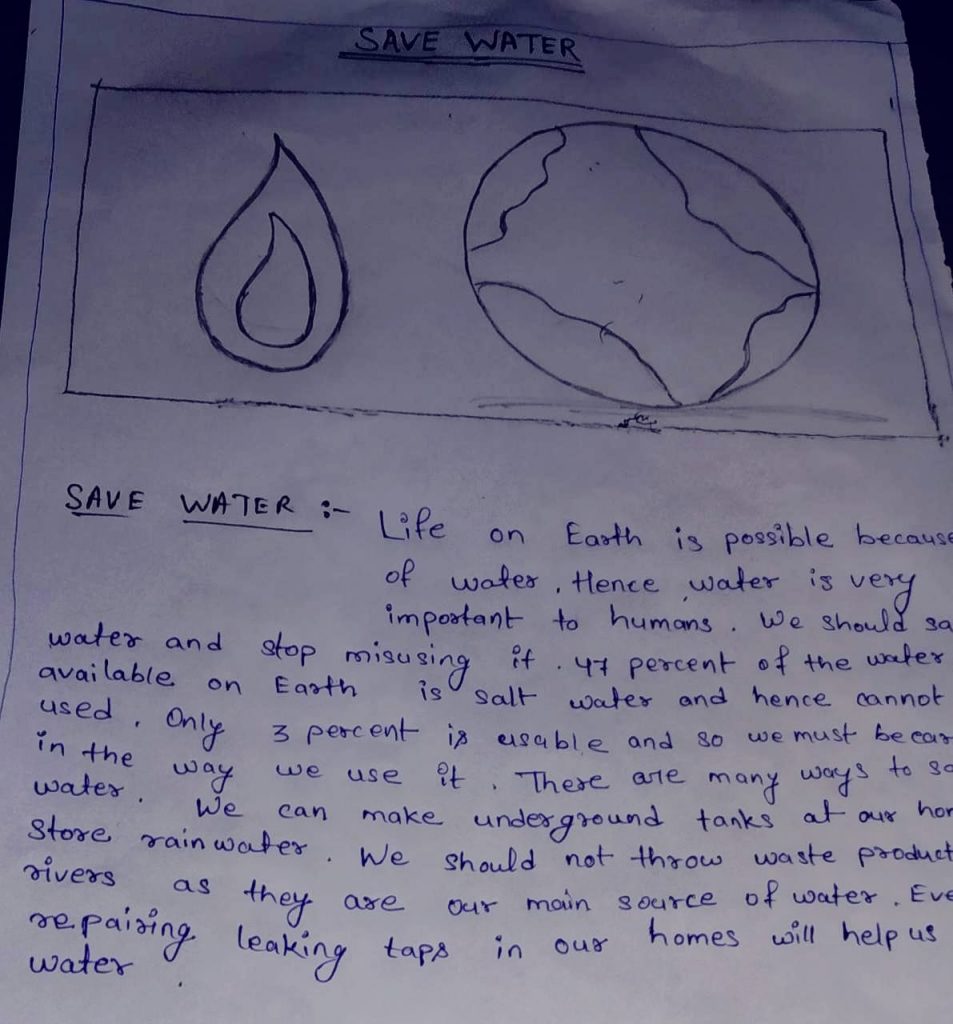 SAVE WATER
SAVE WATER :- Life on Earth is possible because
of water. Hence water is very
important to humans. We should sa
water and stop misusing it. 47 percent of the water
available on Earth is salt water and hence cannot
used. Only 3 percent is usable and so we must be car
in the way we use it. There are many ways to sa
water. We can make underground tanks at our hom
store rainwater. We should not throw waste product
rivers as they are our main source of water. Eve
repairing leaking taps in our homes will help us
water.